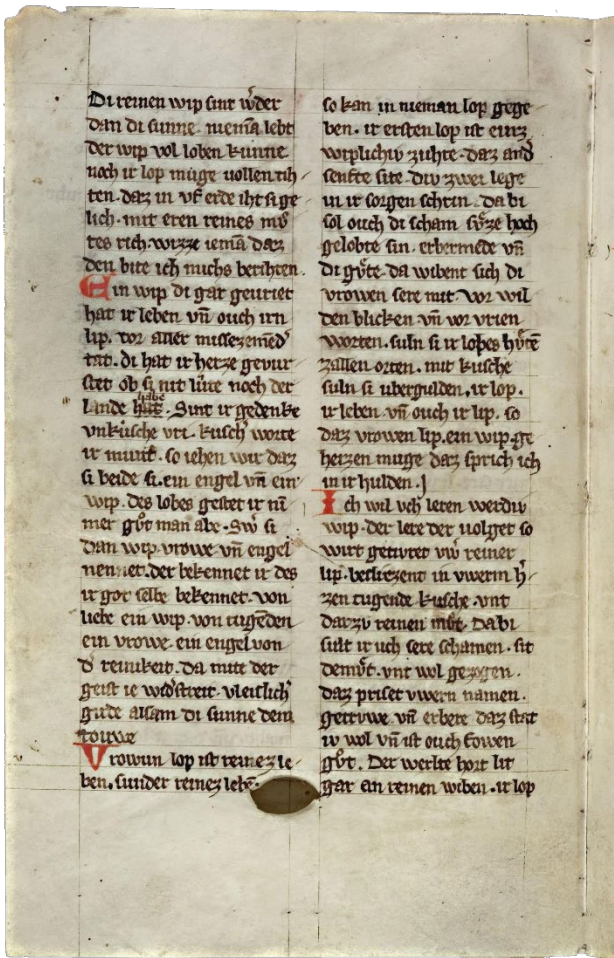 Di reinen wip sint wͤder
dan di sunne. niemā lebt
der wip vol loben kunne
noch ir lop müge vollen tih
ten. daz in vf erde iht sige
lich. mit eren reines mͦ
tes rich. wizze iemā daz
den bite ich michs berihten.
Ein wip di gar gevriet
hat ir leben vn̄ ouch irn
lip. vor aller missezemed᾽
tat. di hat ir herze gevur
stet ob si nit lüte noch der
lande habe hat. Sint ir gedenke
vnkusche vri. kusch᾽ worte
ir munt. so iehen wir daz
si beide si. ein engel vn̄ ein
wip. des lobes gestet ir nī
mer gͦt man abe. Swͦ si
dan wip. vrowe vn̄ engel
nennet. der bekennet ir des
ir got selbe bekennet. von
liebe ein wip. von tugēden
ein vrowe. ein engel von
d᾽ reinikeit. da mite der
geist ie wid᾽streit. vleitlich᾽
gude alsam di sunne dem
touwe
Vrowun lop ist reinez le
ben. sunder reinez lebē.
so kan in nieman lop gege
ben. ir ersten lop ist einz
wiplichiv zuhte. daz and᾽
senfte site. div zwei lege
in ir sorgen schrin. da bi
sol ouch di scham sͮze hoch
gelobte sin. erbermede vn̄
di gͮte. da wibent sich di
vrowen sere mit. vor wil
den blicken vn̄ vor vrien
worten. suln si ir lobes hͮtē
zallen orten. mit kusche
suln si ubergulden. ir lop.
ir leben. vn̄ ouch ir lip. so
daz vrowen lip. ein wip. ge
heizen muge daz sprich ich
in ir hulden.
Ich wil vch leren werdiv
wip. der lere der volget so
wirt getivret vw᾽ reiner
lip. besliezent in vwerm h᾽
zen tugende kusche. vnt
darzv reinen mͦt. da bi
sult ir uch sere schamen. sit
demͮt. vnt wol gezogen.
daz priset vwern namen.
getriwe vn̄ erbere daz stat
iv wol vn̄ ist ouch
gͦt. Der werlte hort lit
gar an reinen wiben. ir lop